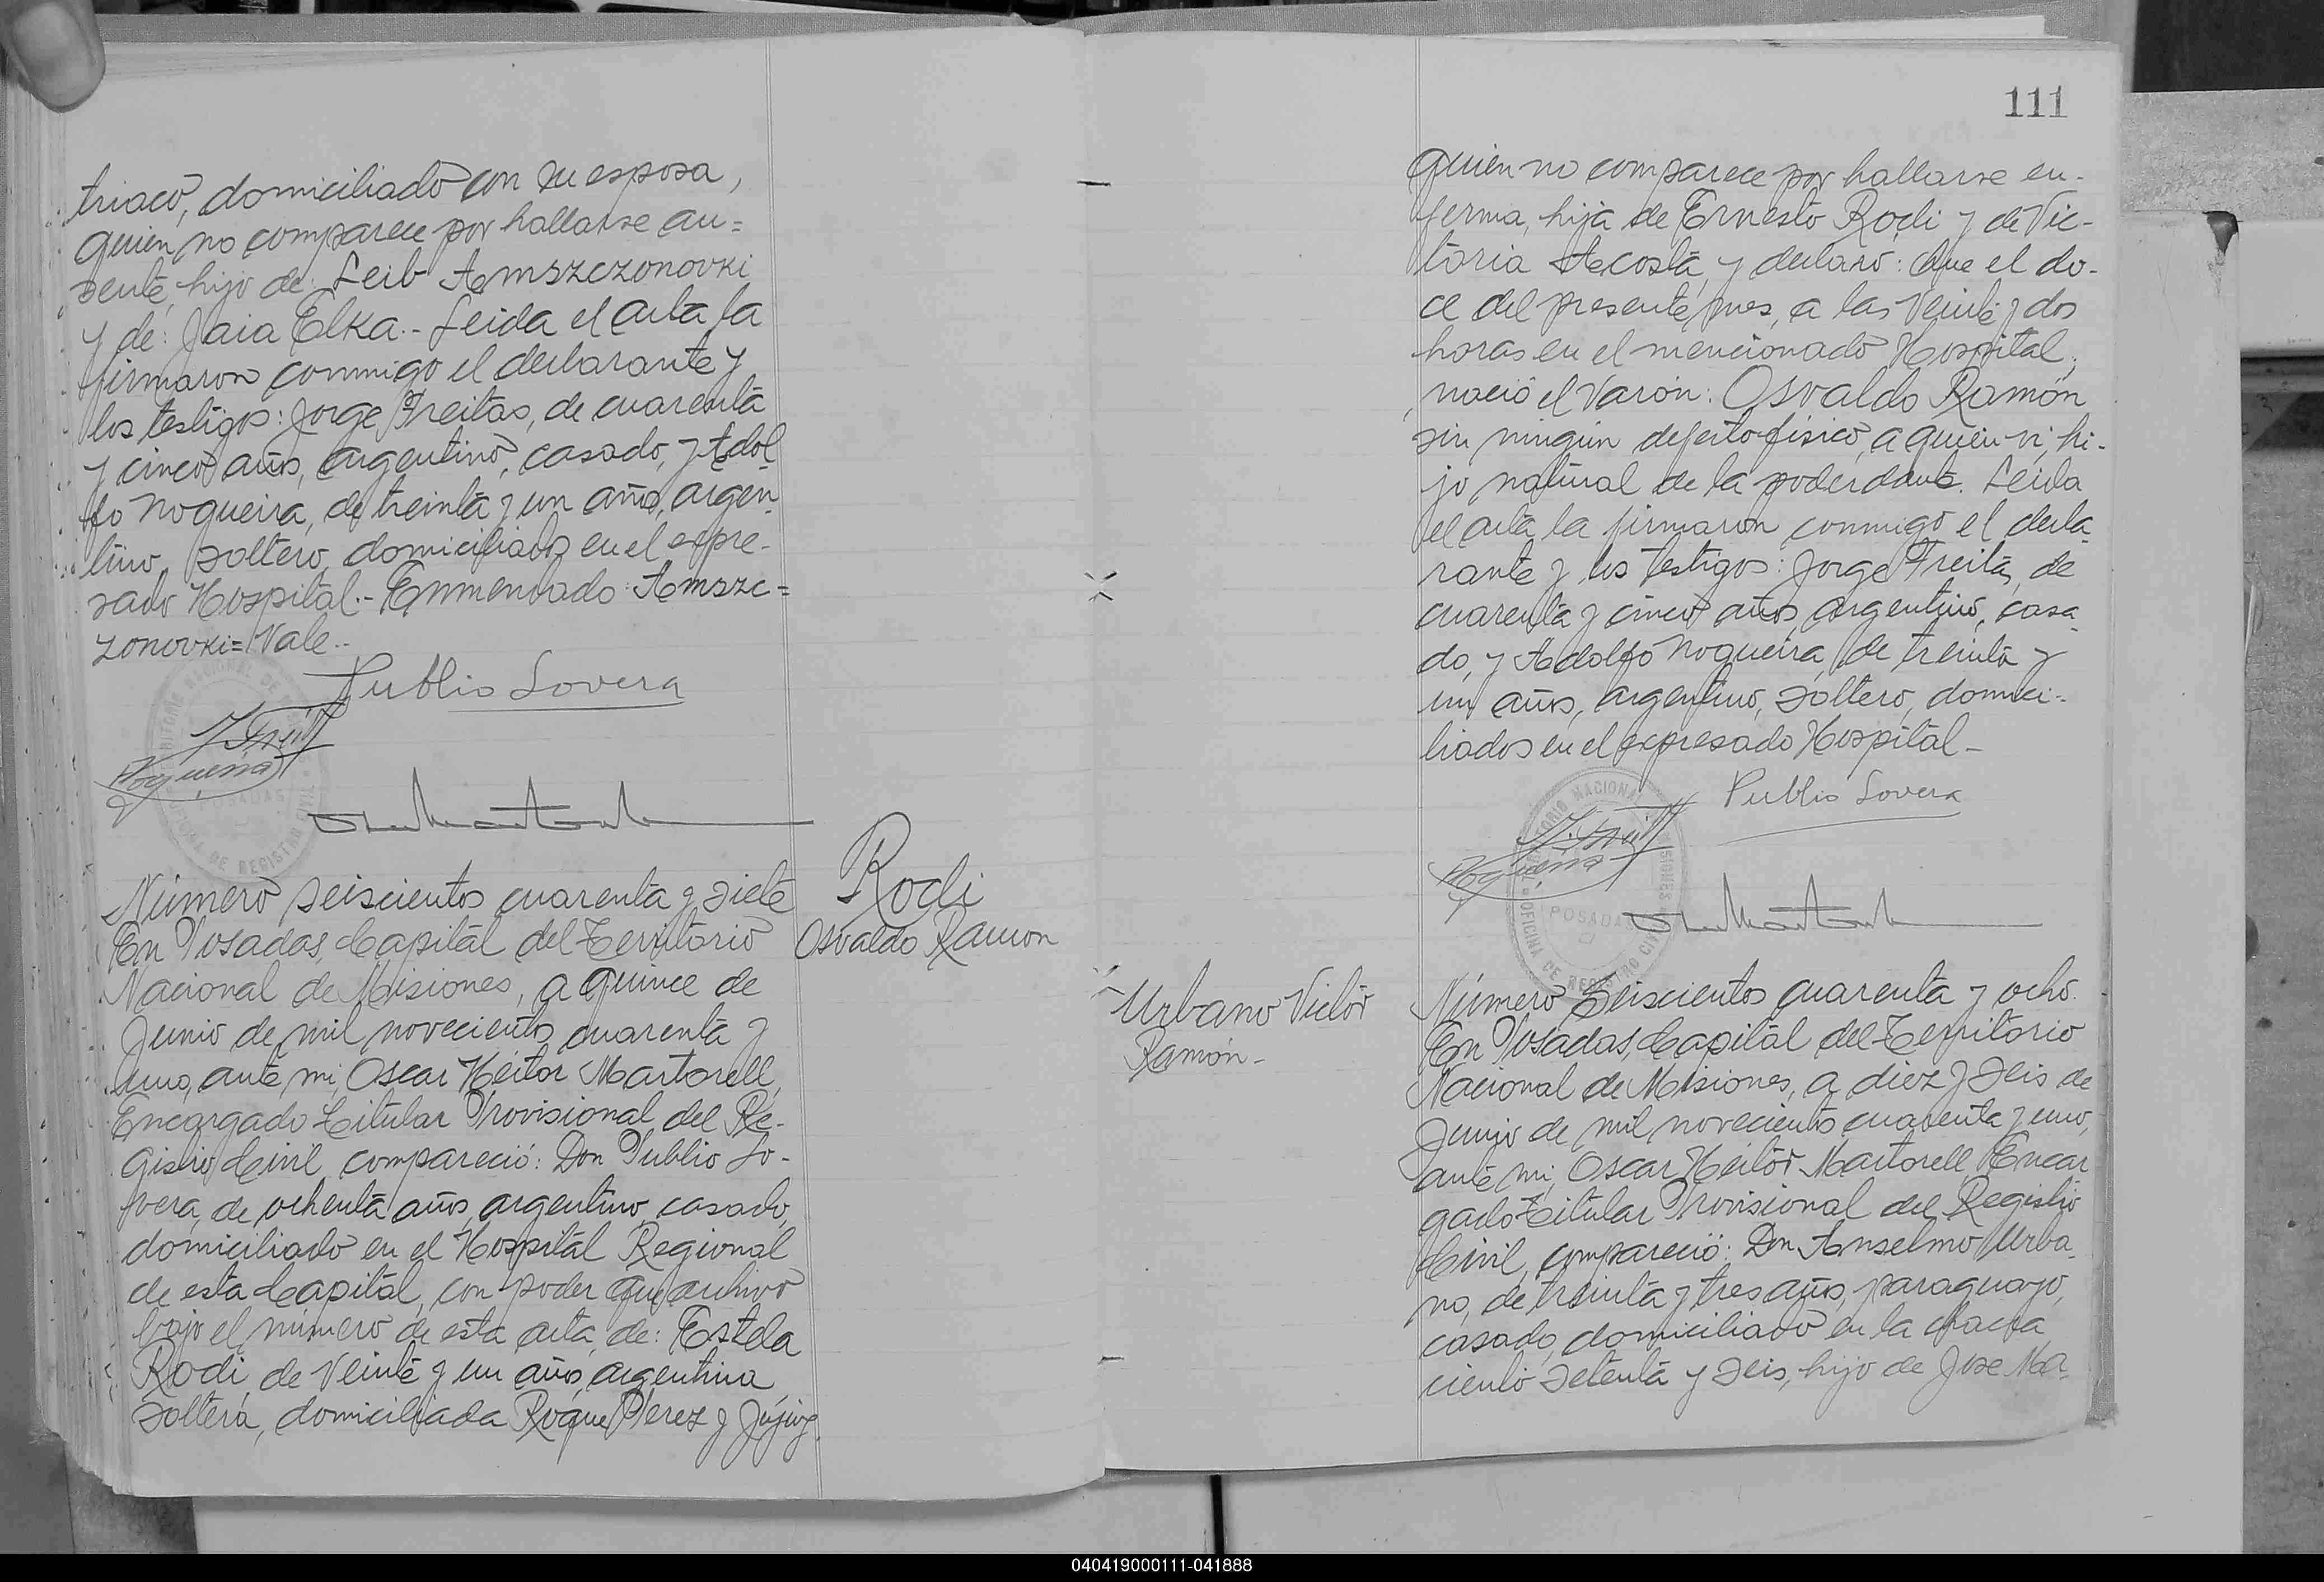 triaco, domiciliado con su esposa,
quien no comparece por hallarse au=
sente, hijo de: Leib Amszczonovki
y de: Jaia Elka.- Leida el acta la
firmaron conmigo el declarante y
los testigos: Jorge Freitas, de cuarenta
y cinco años, argentino, casado, y Adol-
fo Nogueira, de treinta y un años, argen-
tino, soltero, domiciliados en el expre-
sado Hospital.- Enmendado: Amszc=
zonovki= Vale..
Publio Lovera
J. Freit
Nogueira
POSADAS
Número seiscientos cuarenta y siete
En Posadas, Capital del Territorio
Nacional de Misiones, a quince de
Junio de mil novecientos cuarenta y
uno, ante mi, Oscar Héctor Martorell,
Encargado Titular Provisional del Re-
gistro Civil, compareció: Don Publio Lo-
vera, de ochenta años, argentino, casado,
domiciliado en el Hospital Regional
de esta Capital, con poder que archivo
bajo el número de esta acta, de: Estela
Rodi, de veinte y un años, argentina,
soltera, domiciliada Roque Pérez y Jujuy,
Rodi
Osvaldo Ramon
111
quien no comparece por hallarse en-
ferma, hija de Ernesto Rodi y de Vic-
toria Acosta, y declaró: Que el do-
ce del presente mes, a las veinte y dos
horas en el mencionado Hospital,
nació el varón: Osvaldo Ramón
sin ningún defecto físico, a quien vi, hi-
jo natural de la poderdante. Leida
el acta la firmaron conmigo el decla-
rante y los testigos: Jorge Freitas, de
cuarenta y cinco años, argentino, casa-
do, y Adolfo Nogueira, de treinta y
un años, argentino, soltero, domici-
liados en el expresado Hospital-
Publio Lovera
J. Freit
Nogueira
POSADAS
Urbano Victor
Ramón-
Número Seiscientos cuarenta y ocho.
En Posadas, Capital del Territorio
Nacional de Misiones, a diez y seis de
Junio de mil novecientos cuarenta y uno,
ante mi, Oscar Héctor Martorell, Encar
gado Titular Provisional del Registro
Civil, compareció: Don Anselmo Urba-
no, de treinta y tres años, paraguayo,
casado, domiciliado en la chacra
ciento setenta y seis, hijo de Jose Ma-
040419000111-041888